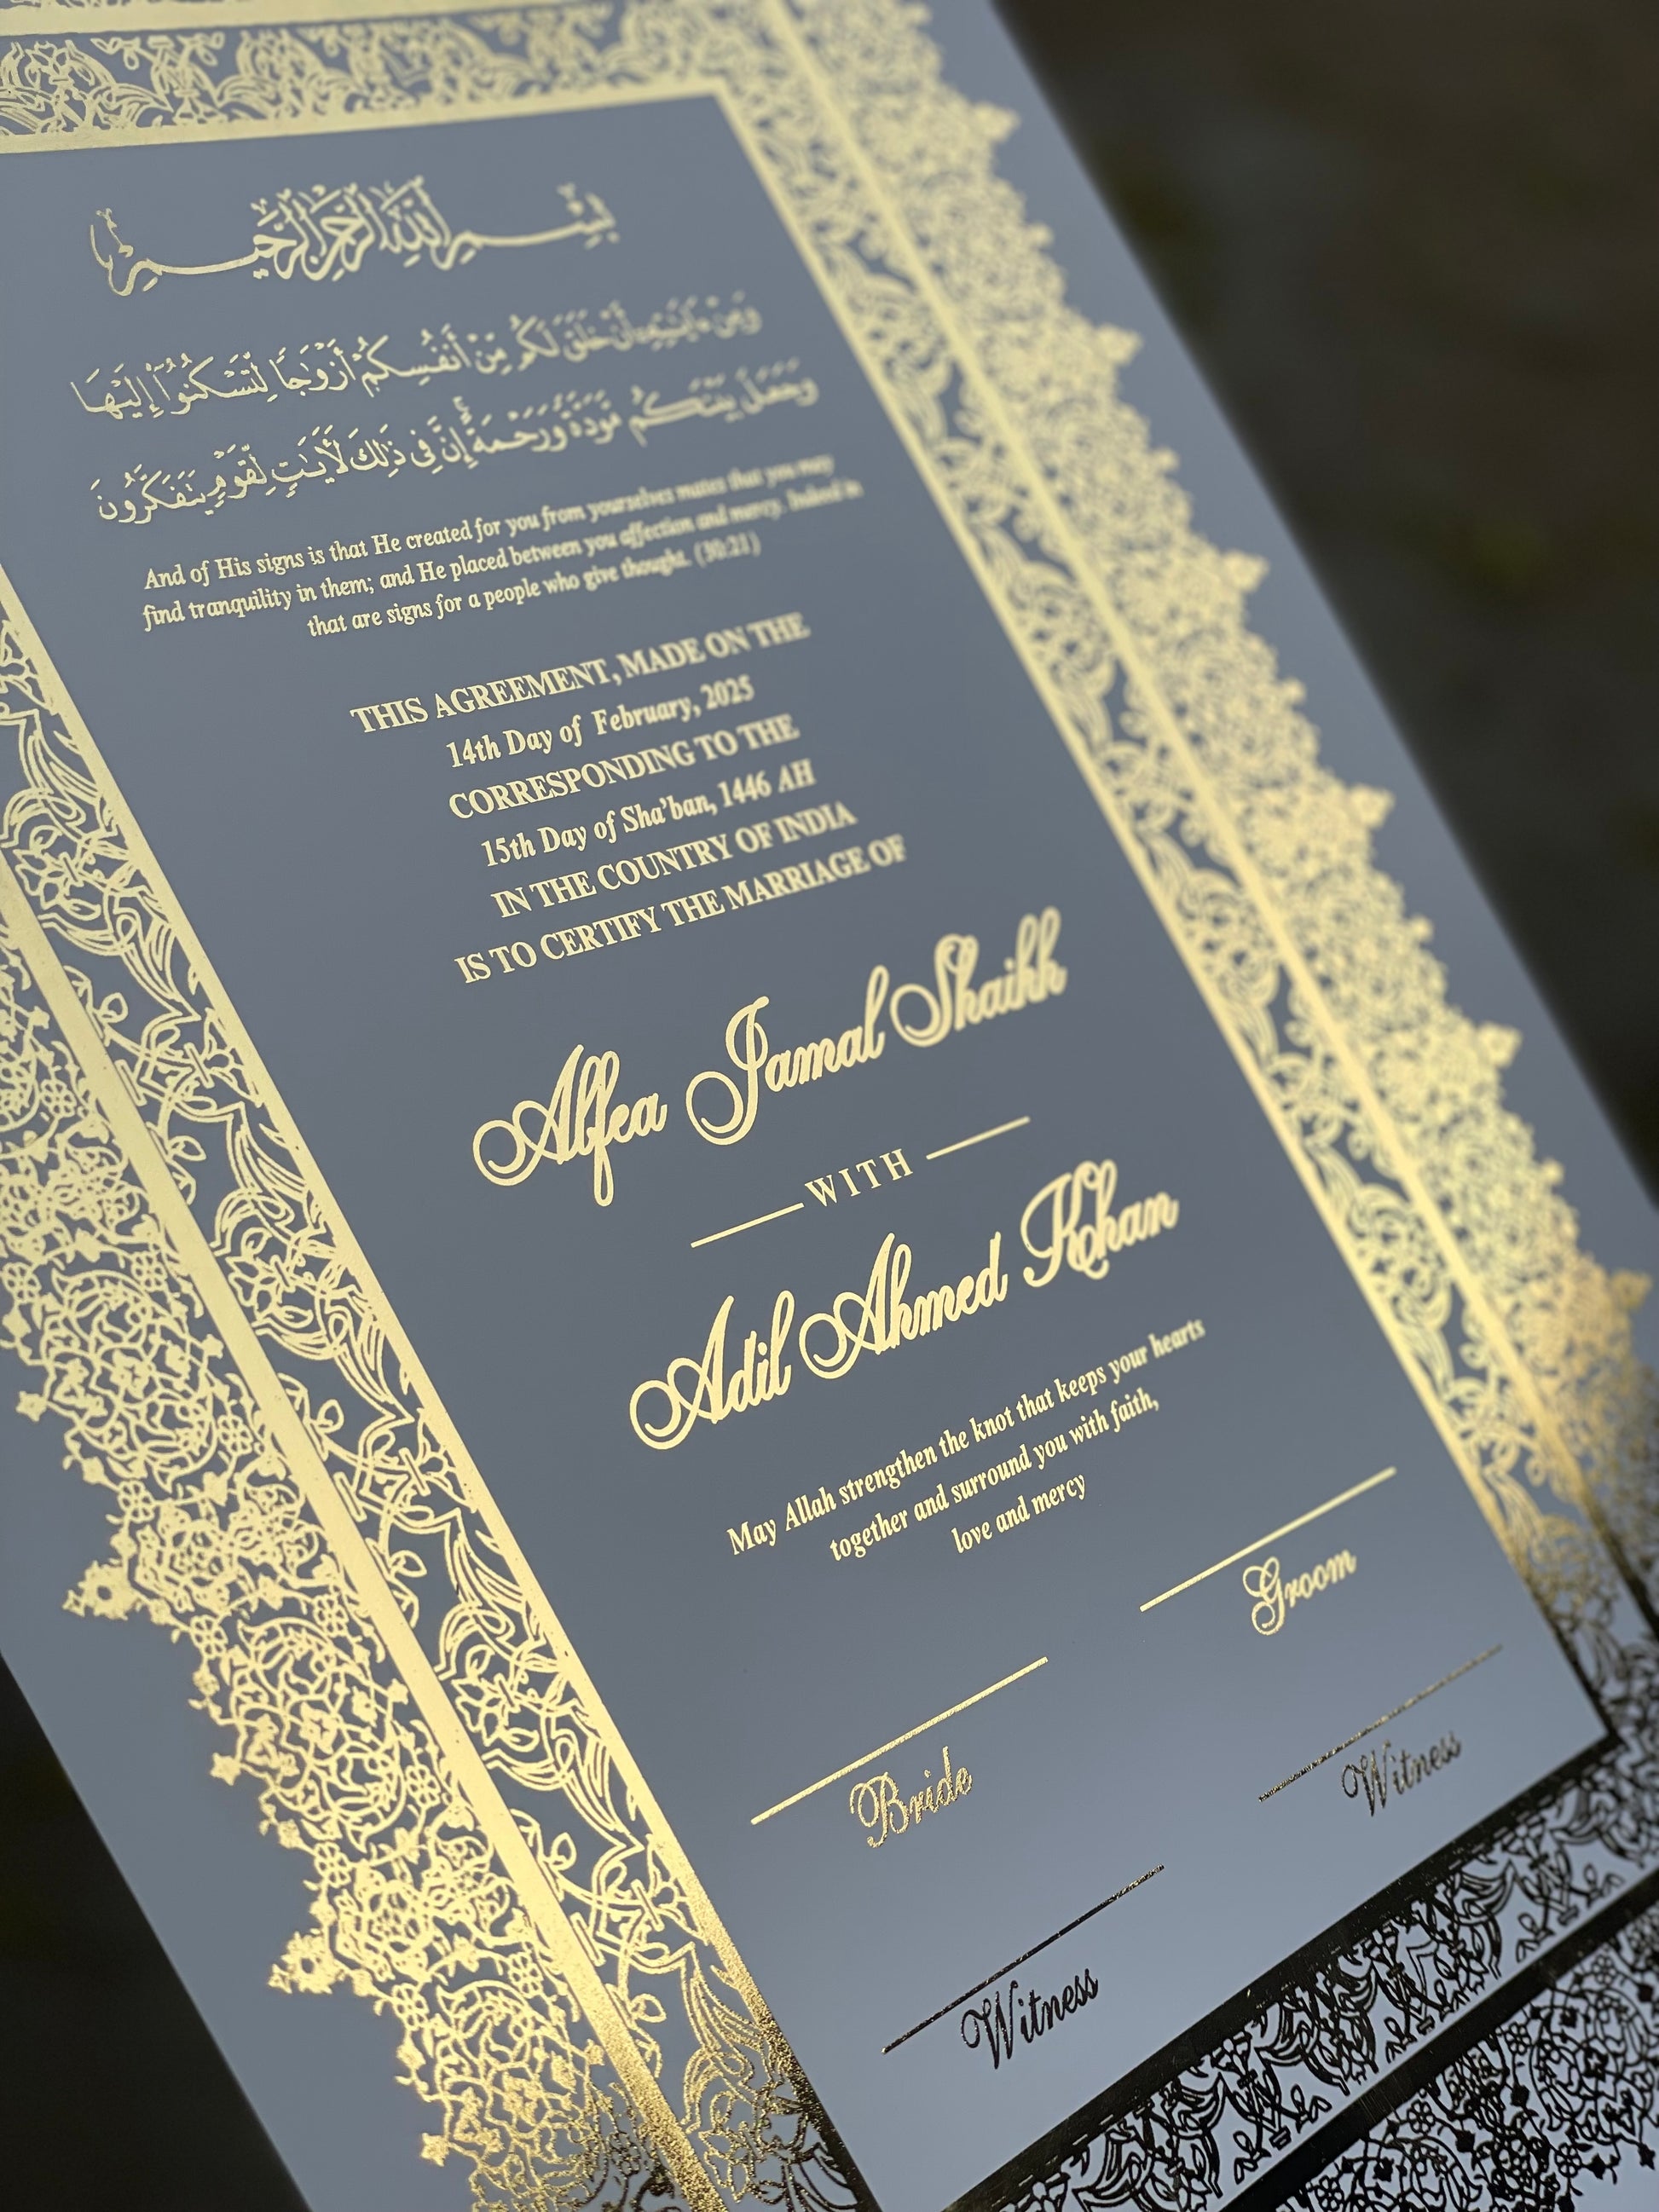 بِسْمِ اللَّهِ الرَّحْمَٰنِ الرَّحِيمِ
وَمِنْ ءَايَـٰتِهِۦٓ أَنْ خَلَقَ لَكُم مِّنْ أَنفُسِكُمْ أَزْوَٰجًا لِّتَسْكُنُوٓا۟ إِلَيْهَا
وَجَعَلَ بَيْنَكُم مَّوَدَّةً وَرَحْمَةً ۚ إِنَّ فِى ذَٰلِكَ لَـَٔايَـٰتٍ لِّقَوْمٍ يَتَفَكَّرُونَ
And of His signs is that He created for you from yourselves mates that you may
find tranquility in them; and He placed between you affection and mercy. Indeed in
that are signs for a people who give thought. (30:21)
THIS AGREEMENT, MADE ON THE
14th Day of February, 2025
CORRESPONDING TO THE
15th Day of Sha'ban, 1446 AH
IN THE COUNTRY OF INDIA
IS TO CERTIFY THE MARRIAGE OF
Alfea Jamal Shaikh
WITH
Adil Ahmed Khan
May Allah strengthen the knot that keeps your hearts
together and surround you with faith,
love and mercy
Groom
Bride
Witness
Witness